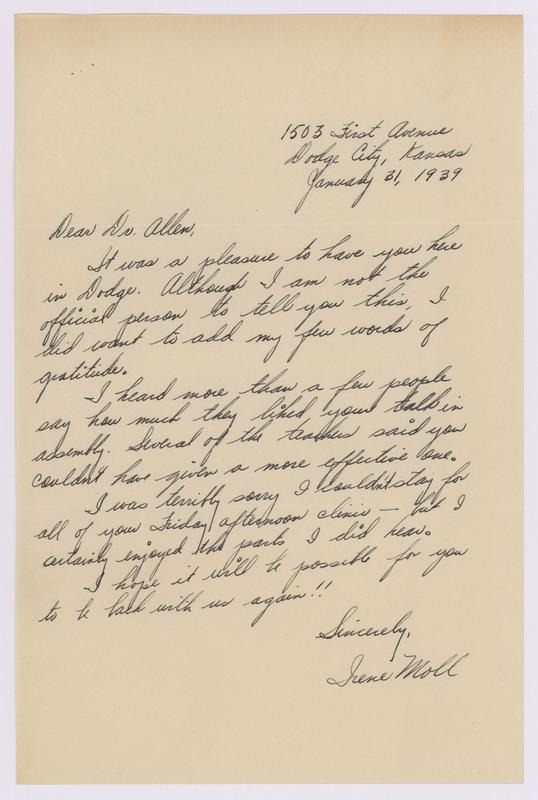 1503 First Avenue
Dodge City, Kansas
January 31, 1939
Dear Dr. Allen,
It was a pleasure to have you here
in Dodge. Although I am not the
official person to tell you this, I
did want to add my few words of
gratitude.
I heard more than a few people
say how much they liked your talk in
assembly. Several of the teachers said you
couldn't have given a more effective one.
I was terribly sorry I couldn't stay for
all of your Friday afternoon clinic — but I
certainly enjoyed the parts I did hear.
I hope it will be possible for you
to be back with us again!!
Sincerely,
Irene Moll